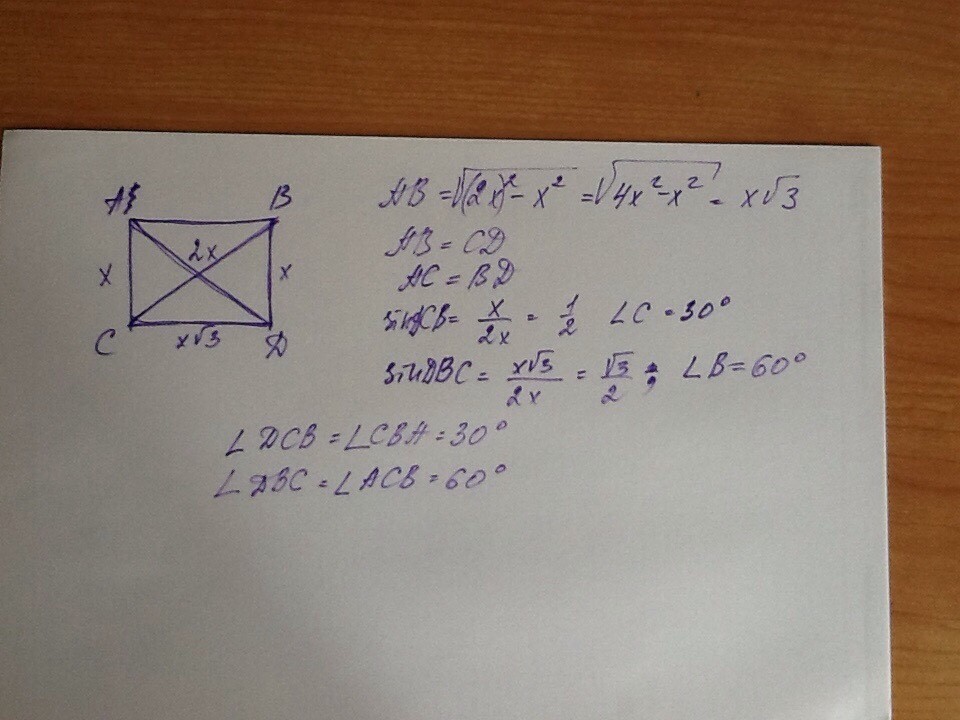 A B
2x
x x
C x√3 D
AB = √(2x)² - x² = √4x² - x² = x√3
AB = CD
AC = BD
sin DCB = x/2x = 1/2 ∠C = 30°
sin DBC = x√3/2x = √3/2 ; ∠B = 60°
∠DCB = ∠CBA = 30°
∠DBC = ∠ACB = 60°